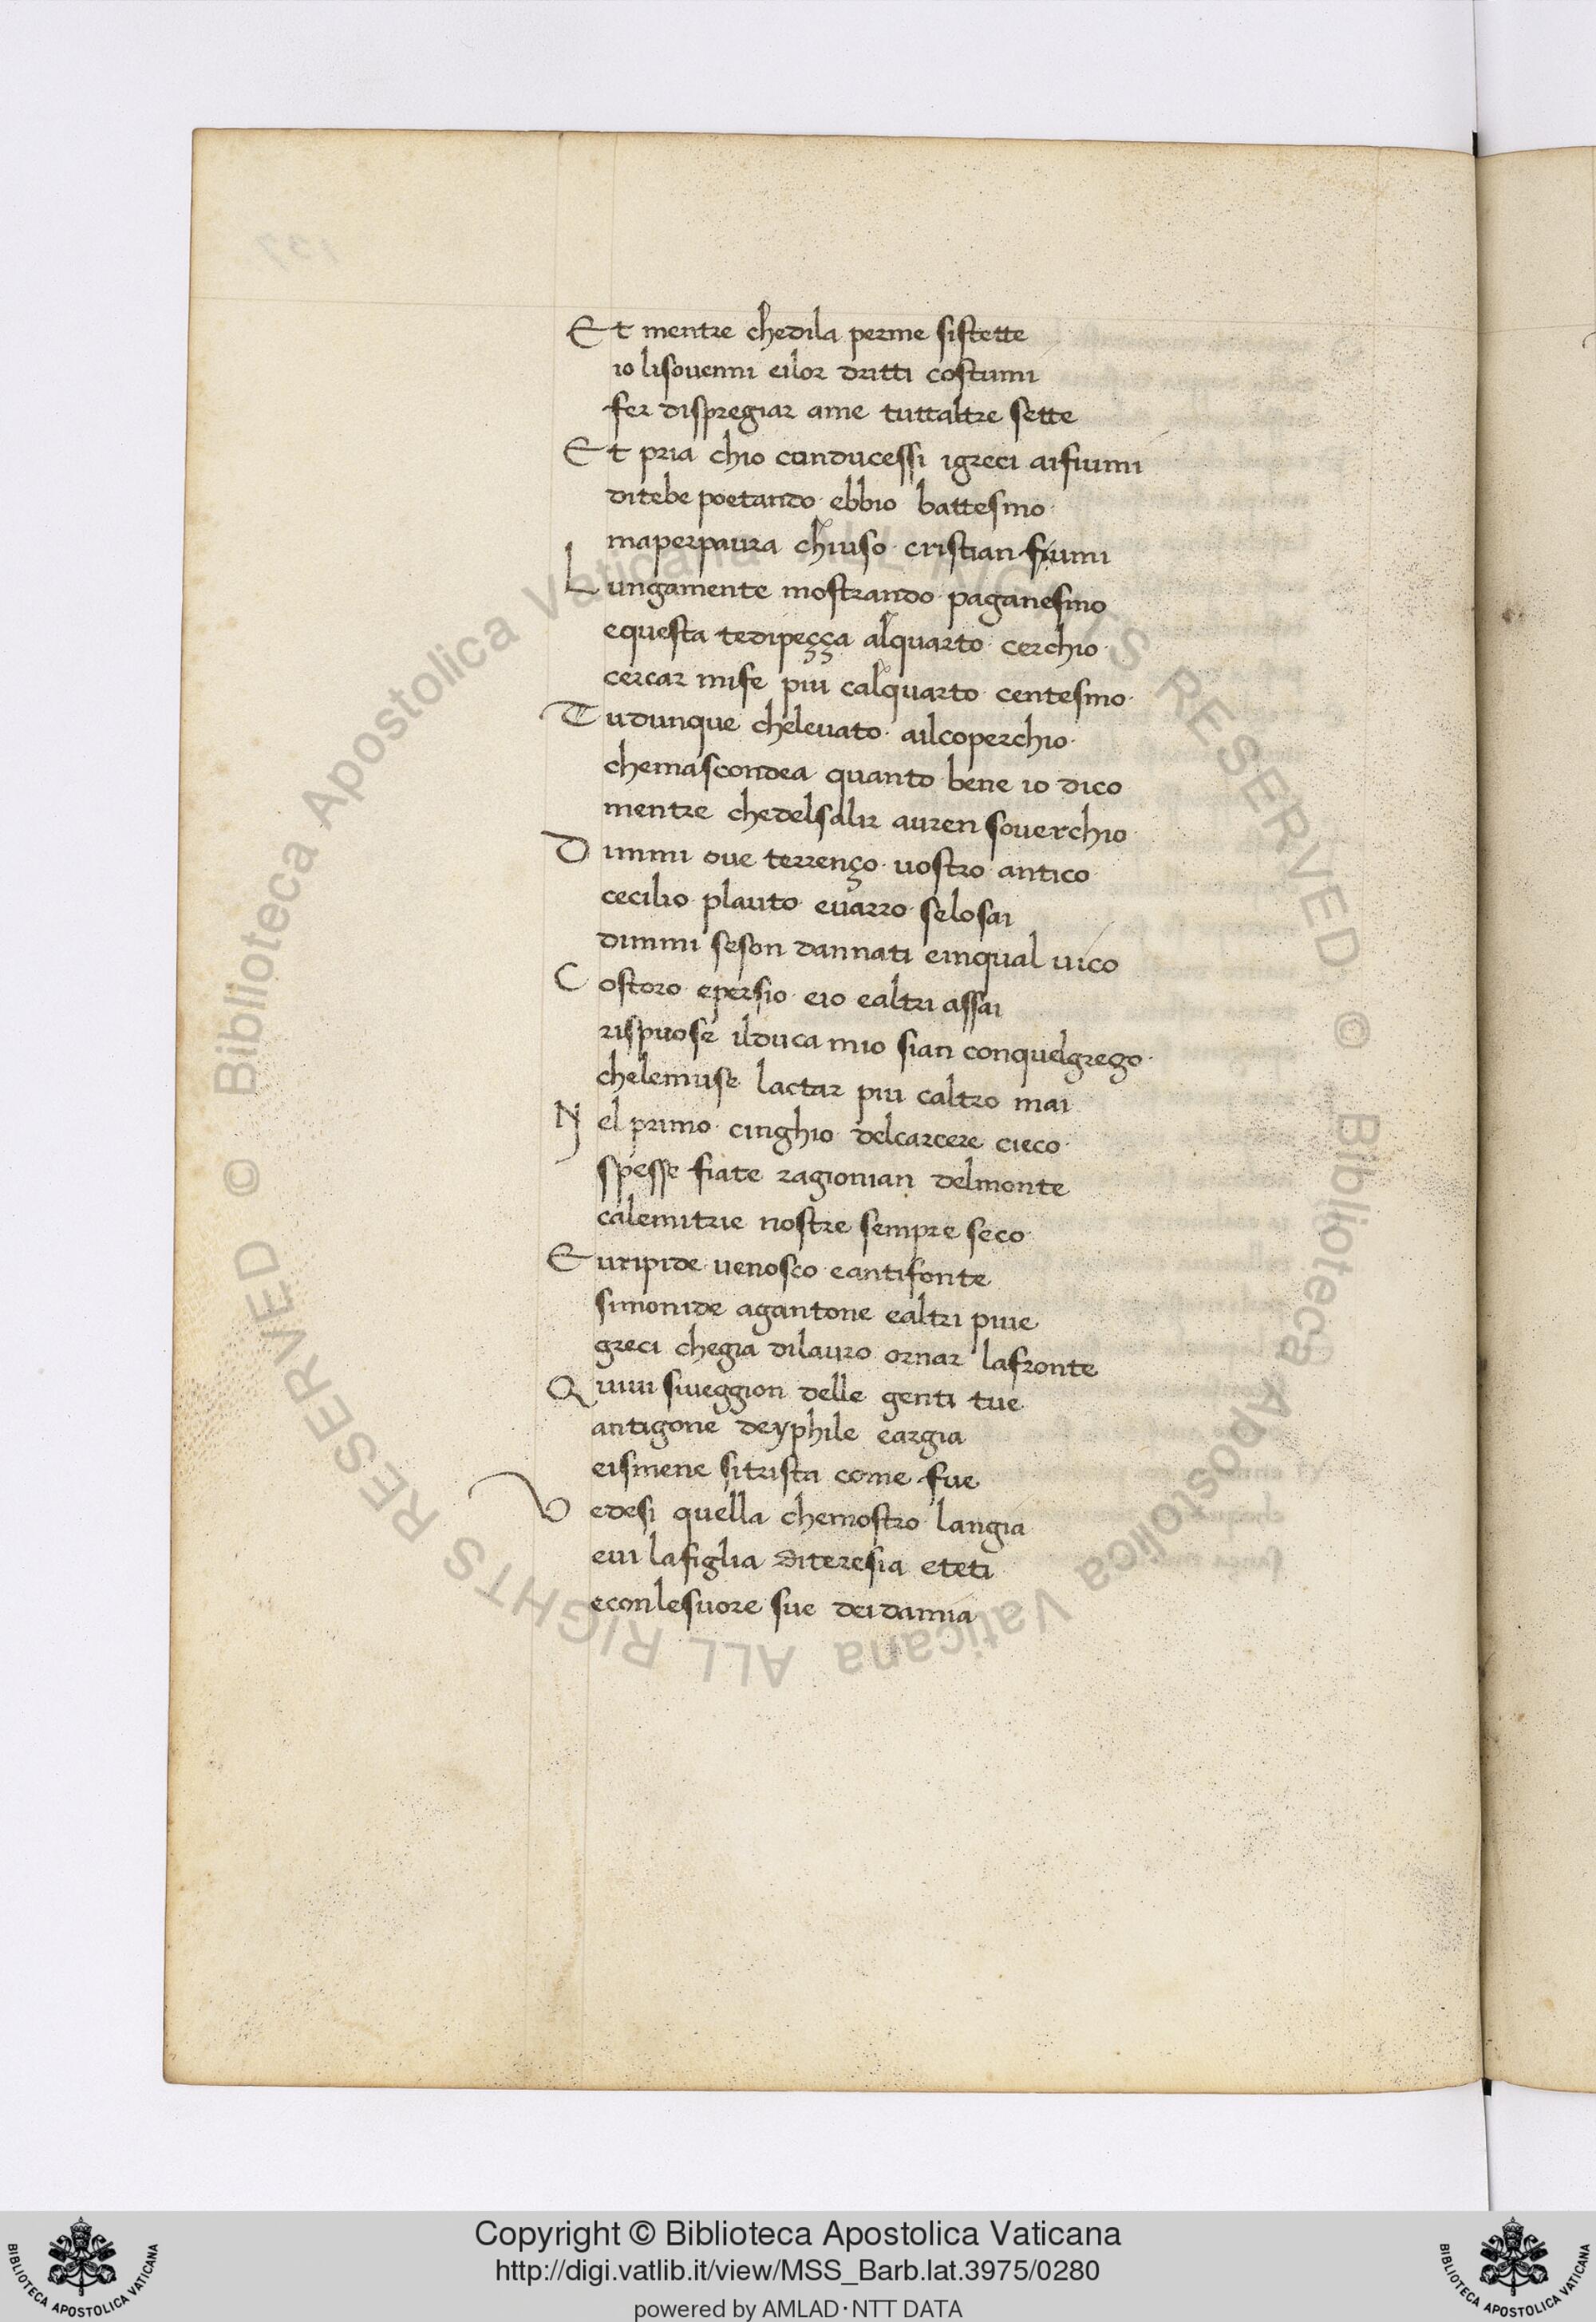 Et mentre chedila perme sistette
io lisovenni eilor dritti costumi
fer dispregiar ame tuttaltre sette
Et pria chio conducessi igreci aifiumi
ditebe poetando ebbio battesmo
maperpaura chiuso cristian fiumi
Lungamente mostrando paganesmo
equesta tedipeçça alquarto cerchio
cercar mife piu calquarto centesmo
Tudunque chelevato ailcoperchio
chemascondea quanto bene io dico
mentre chedelsalir auren soverchio
Dimmi ove terrenço vostro antico
cecilio plauto evarro selosai
dimmi seson dannati einqual vico
Costoro epersio eio ealtri assai
rispuose ilduca mio sian conquelgrego
chelemuse lactar piu caltro mai
Nel primo cinghio delcarcere cieco
spesse fiate ragionian delmonte
calemitrie nostre sempre seco
Euripide venosco eantifonte
simonide agantone ealtri piue
greci chegia dilauro ornar lafronte
Quivi siveggion delle genti tue
antigone deyphile eargia
eismene sitrista come fue
Vedesi quella chemostro langia
evi lafiglia diteresia eteti
econlesuore sue deidamia
Copyright © Biblioteca Apostolica Vaticana
http://digi.vatlib.it/view/MSS_Barb.lat.3975/0280
powered by AMLAD·NTT DATA
BIBLIOTECA APOSTOLICA VATICANA
BIBLIOTECA APOSTOLICA VATICANA
© Biblioteca Apostolica Vaticana ALL RIGHTS RESERVED
© Biblioteca Apostolica Vaticana ALL RIGHTS RESERVED